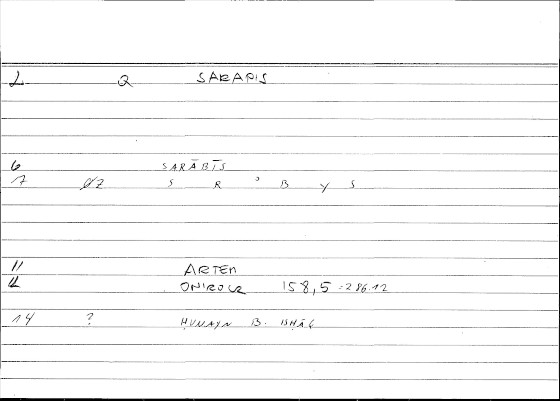 1 Q SARAPIS
6 SARĀBĪS
7 02 S R ° B Y S
11 ARTEM
12 ONIROCR 158,5 = 286.12
14 ? ḤUNAYN B. ISḤĀQ